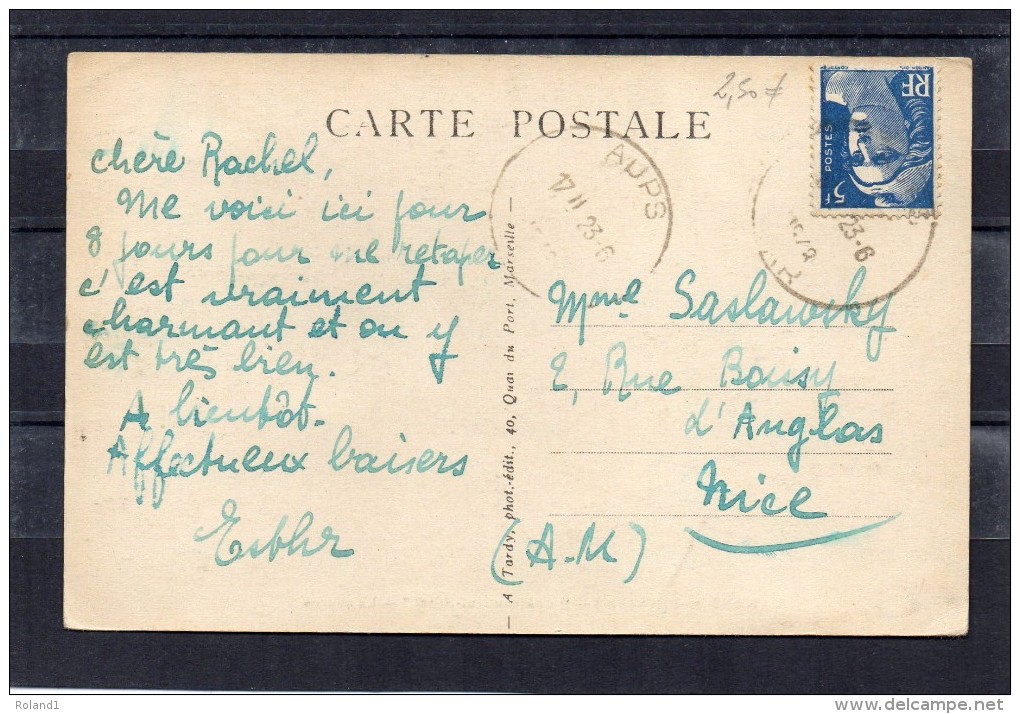 2,50 F
CARTE POSTALE
RF
POSTES
5F
AUPS
17 H 23-6
23-6
VAR
chère Rachel,
Me voici ici pour
8 jours pour me retaper
c'est vraiment
charmant et on y
est très bien.
A bientôt.
Affectueux baisers
Esther
A Tardy, phot.-édit., 40, Quai du Port, Marseille —
Mme Saslawsky
2, Rue Boissy
d'Anglas
Nice
(A.M)
Roland1
www.delcampe.net